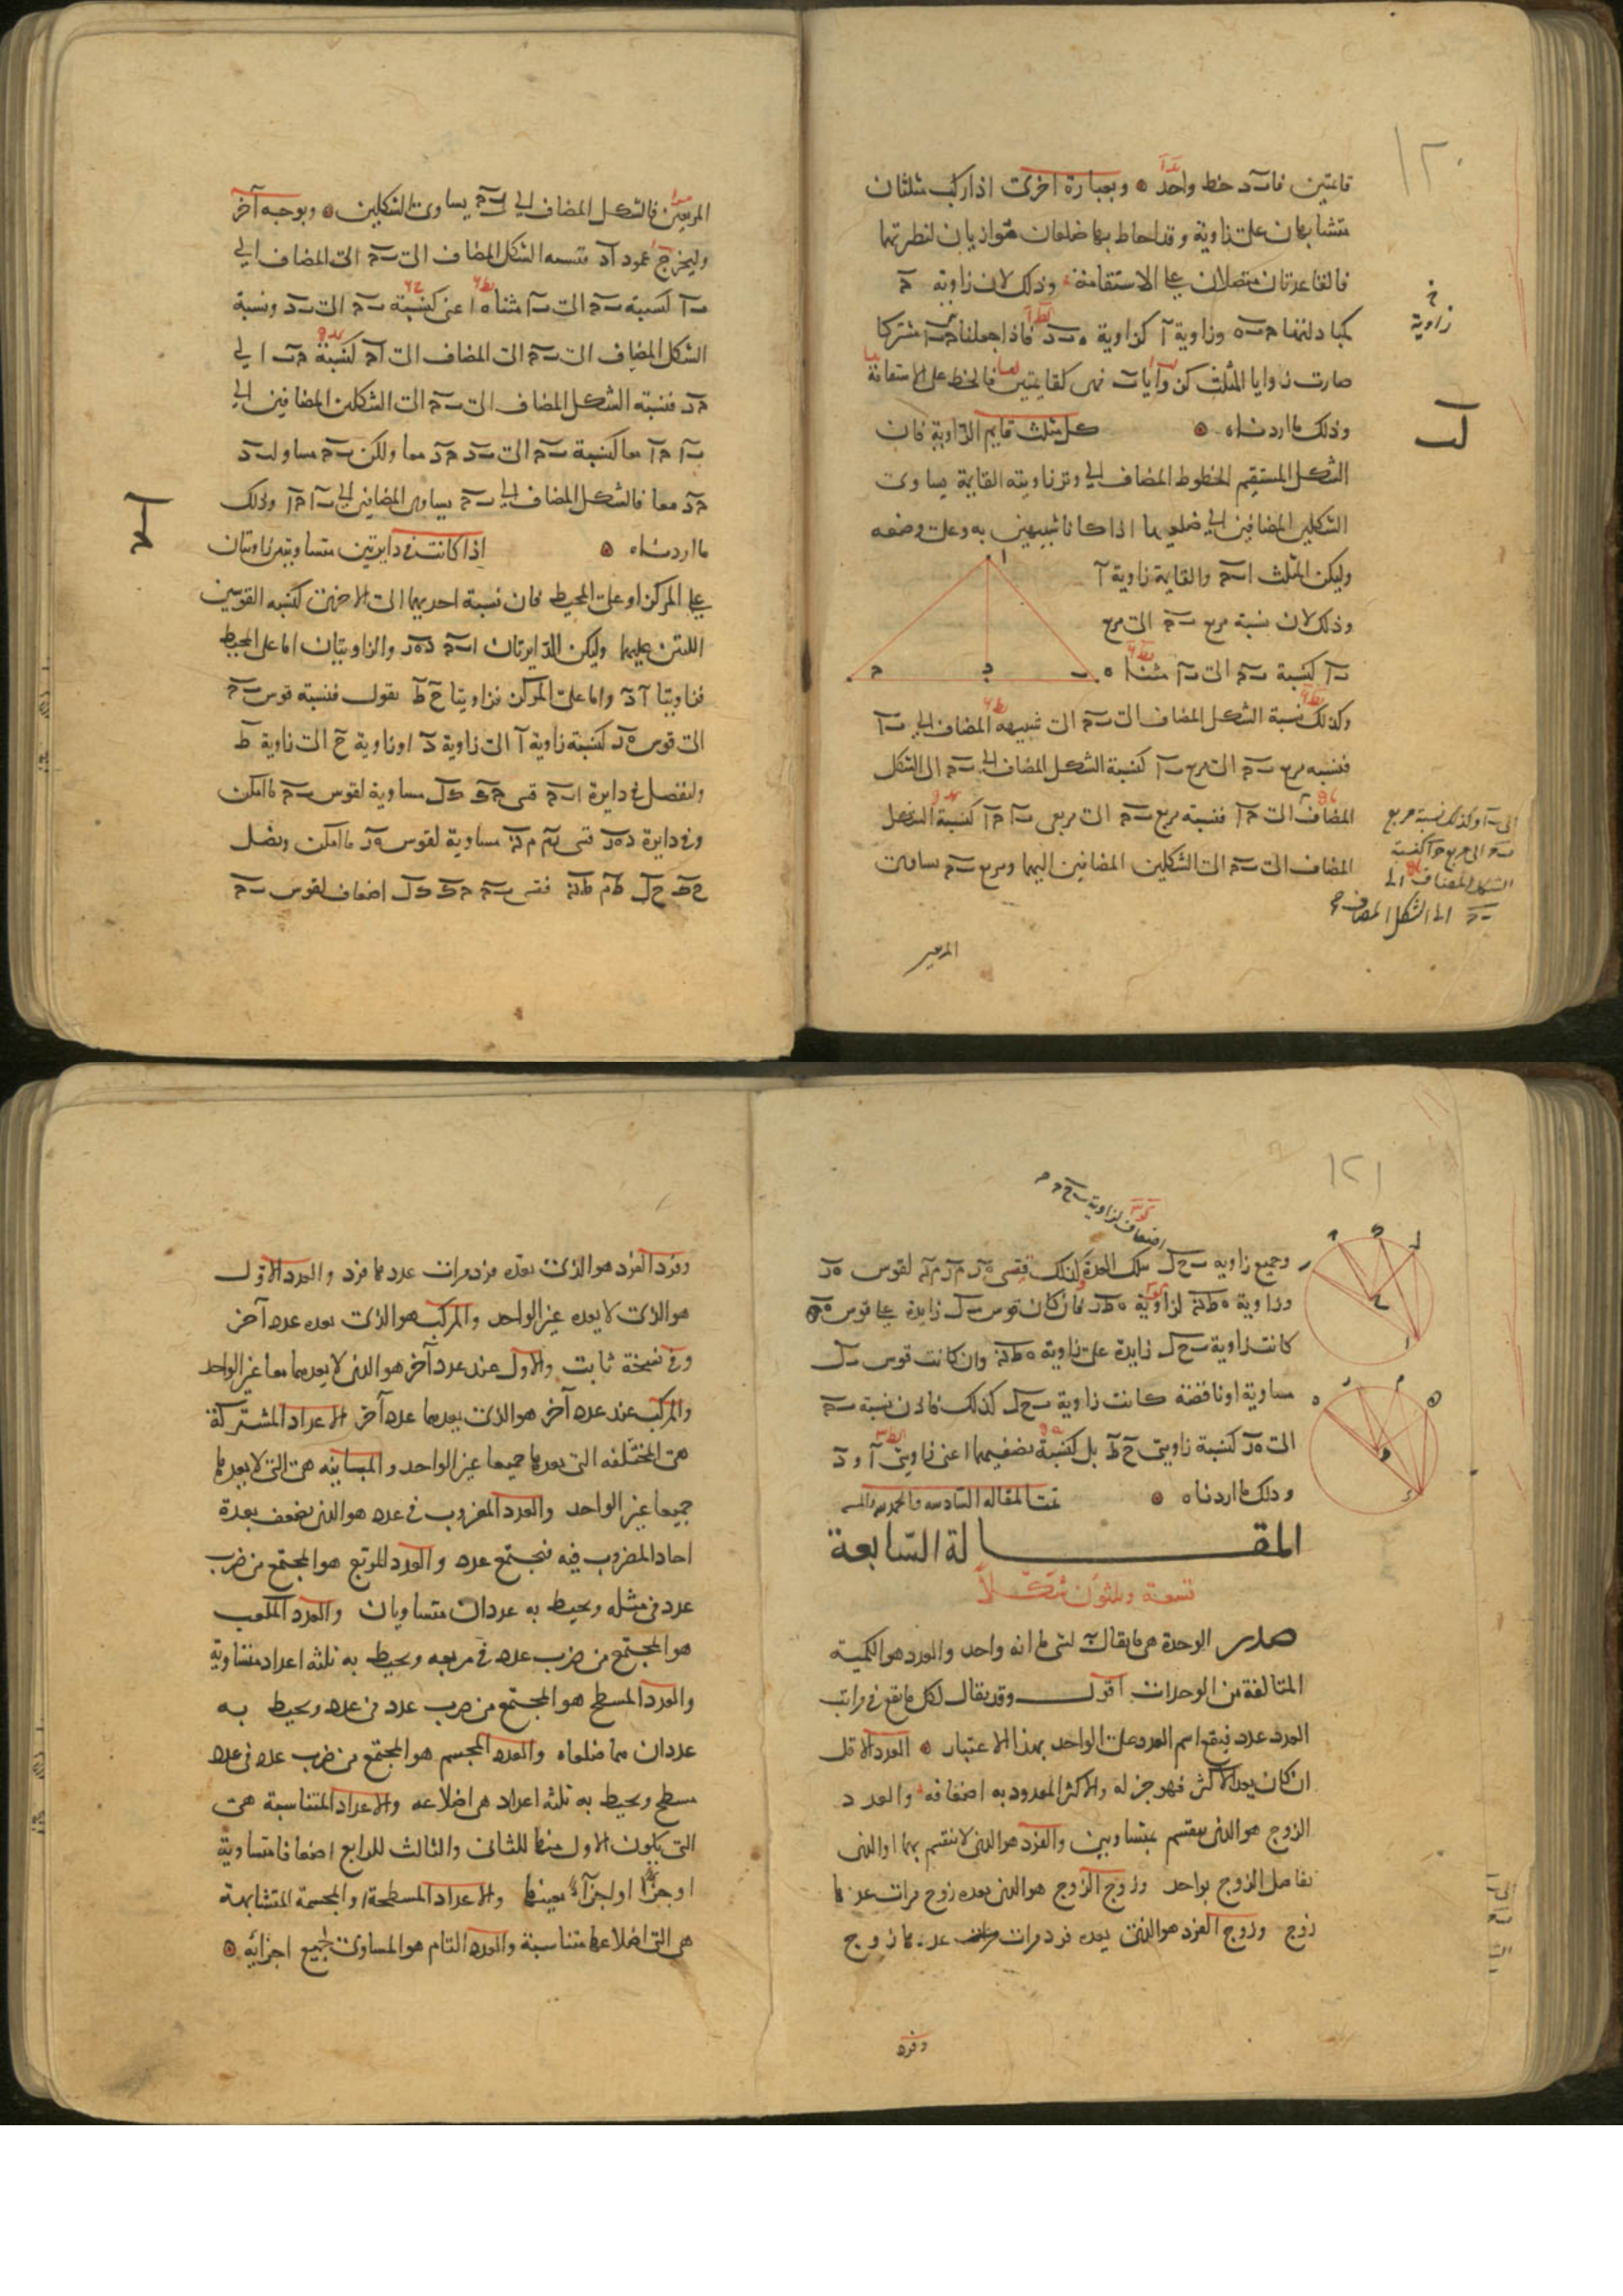 ١٢٠
قائمتين فاذن ب د خط واحد وبعبارة اخرى اذا ركب مثلثان
متشابهان على زاوية وقد احاط بها ضلعان متوازيان لنظيرتهما
فالقاعدتان متصلان على الاستقامة وذلك لان زاوية
وزاوية ا كزاوية فاذا جعلنا مشتركا
صارت زوايا المثلث كقايمتين فالخط على الاستقامة
وذلك ما اردناه كل مثلث قايم الزاوية فان
الشكل المستقيم الخطوط المضاف الى وتر زاويته القايمة يساوى
الشكلين المضافين الى ضلعيها اذا كانا شبيهين به وعلى وضعه
وليكن المثلث ا ب ح والقايمة زاوية ا
وذلك لان نسبة مربع ب ح الى مربع
ب ا كنسبة ب ح الى ب ا مثناة
وكذلك نسبة الشكل المضاف الى ب ح الى شبيهه المضاف الى ب ا
فنسبه مربع ب ح الى مربع ب ا كنسبة الشكل المضاف الى ب ح الى الشكل
المضاف الى ح ا فنسبة مربع ب ح الى مربعى ب ا ح ا كنسبة الشكل
المضاف الى ب ح الى الشكلين المضافين اليهما ومربع ب ح يساوى
زاوية
لب
الى ب ا وكذلك نسبة مربع
ب ح الى مربع ح ا كنسبة
الشكل المضاف الى
ب ح الى الشكل المضاف
المربعين
المربعين فالشكل المضاف الى ب ح يساوى الشكلين وبوجه آخر
وليخرج عمود ا د فنسبه الشكل المضاف الى ب ح الى المضاف الى
ب ا كنسبة ب ح الى ب ا مثناه اعنى كنسبة ب ح الى ب د ونسبة
الشكل المضاف الى ب ح الى المضاف الى ا ح كنسبة ح ب الى
ح د فنسبة الشكل المضاف الى ب ح الى الشكلين المضافين الى
ب ا ح ا معا كنسبة ب ح الى ب د ح د معا ولكن ب ح مساو لب د
ح د معا فالشكل المضاف الى ب ح يساوى المضافين الى ب ا ح ا وذلك
ما اردناه اذا كانت فى دايرتين متساويتين زاويتان
على المركز او على المحيط فان نسبة احديهما الى الاخرى كنسبه القوسين
اللتين عليهما وليكن الدايرتان ا ب ح د ه ر والزاويتان اما على المحيط
فزاويتا ا د واما على المركز فزاويتا ح ط نقول فنسبة قوس ب ح
الى قوس ه ر كنسبة زاوية ا الى زاوية د او زاوية ح الى زاوية ط
ولنفصل فى دايرة ا ب ح قسى ح ك ك ل مساوية لقوس ب ح ما امكن
وفى دايرة د ه ر قسى ر م م ن مساوية لقوس ه ر ما امكن ونصل
ح ك ح ل ط م ط ن فقسى ب ح ح ك ك ل اضعاف لقوس ب ح
١٢١
اضعاف لزاوية ب ح ح
وجميع زاوية ب ح ل بتلك العدة وكذلك قسى ه ر ر م م ن لقوس ه ر
وزاوية ه ط ن لزاوية ه ط ر فان كان قوس ب ل زايدة على قوس ه ن
كانت زاوية ب ح ل زايدة على زاوية ه ط ن وان كانت قوس ب ل
مساوية او ناقصة كانت زاوية ب ح ل كذلك فاذن نسبة ب ح
الى ه ر كنسبة زاويتى ح ط بل كنسبة نصفيهما اعنى زاويتى ا و د
وذلك ما اردناه تمت المقاله السادسه والحمد لله
المقالة السابعة
تسعة وثلثون شكلا
صدر الوحدة هى ما يقال به لشى ما انه واحد والعدد هو الكمية
المتالفة من الوحدات اقول وقد يقال لكل ما يقع فى مراتب
العدد عدد فيقع اسم العدد على الواحد بهذا الاعتبار العدد الاقل
ان كان يعد الاكثر فهو جزء له والاكثر المعدود به اضعافه والعدد
الزوج هو الذى ينقسم بمتساويين والفرد هو الذى لا ينقسم بهما او الذى
يفاضل الزوج بواحد وزوج الزوج هو الذى يعده زوج مرات عددها
زوج وزوج الفرد هو الذى يعده فرد مرات عددها زوج
وفرد
وفرد الفرد هو الذى يعده فرد مرات عددها فرد والعدد الاول
هو الذى لا يعده غير الواحد والمركب هو الذى يعده عدد آخر
وفى نسخة ثابت والاول عند عدد آخر هو الذى لا يعدهما معا غير الواحد
والمركب عند عدد آخر هو الذى يعدهما عدد آخر الاعداد المشتركة
هى المختلفه التى يعدها جميعا غير الواحد والمتباينه هى التى لا يعدها
جميعا غير الواحد والعدد المضروب فى عدد هو الذى يضعف بعدة
احاد المضروب فيه فيجتمع عدد والعدد المربع هو المجتمع من ضرب
عدد فى مثله ويحيط به عددان متساويان والعدد المكعب
هو المجتمع من ضرب عدد فى مربعه ويحيط به ثلثه اعداد متساوية
والعدد المسطح هو المجتمع من ضرب عدد فى عدد ويحيط به
عددان هما ضلعاه والعدد المجسم هو المجتمع من ضرب عدد فى عدد
مسطح ويحيط به ثلثه اعداد هى اضلاعه والاعداد المتناسبة هى
التى يكون الاول منها للثانى والثالث للرابع اضعافا متساوية
او جزءا او اجزاء بعينها والاعداد المسطحة والمجسمة المتشابهة
هى التى اضلاعها متناسبة والعدد التام هو المساوى لجميع اجزائه